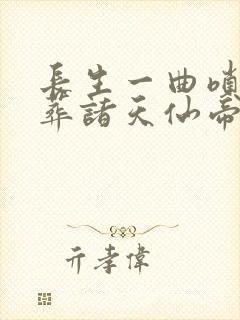 長生一曲嗩
葬諸天仙帝
亓孝偉